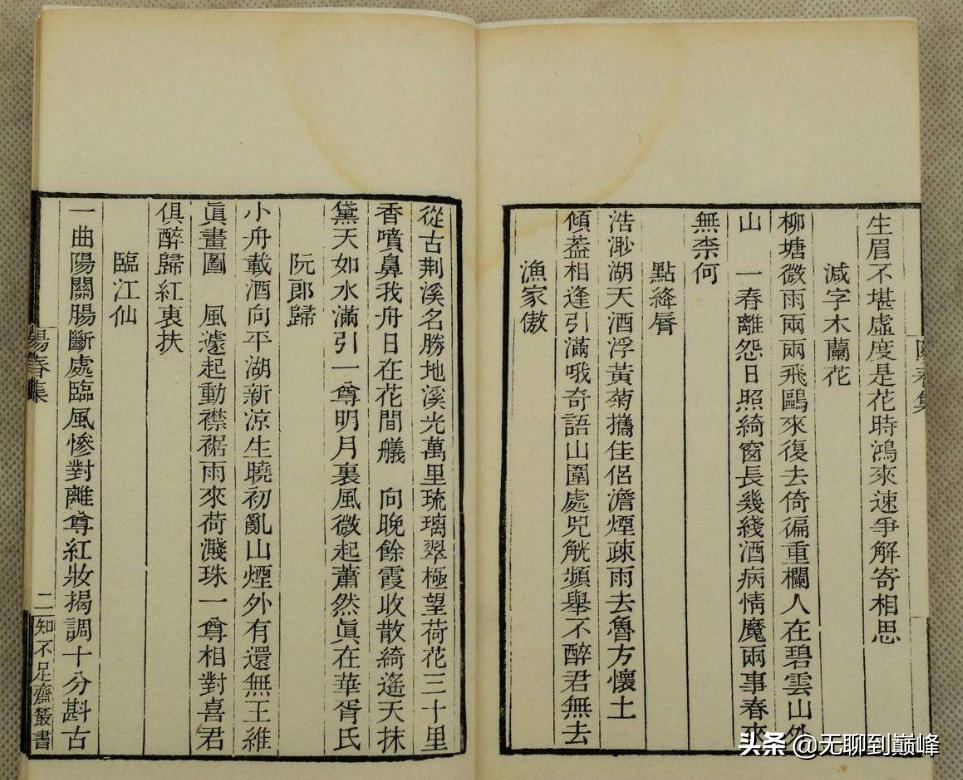 生眉不堪虛度是花時鴻來速爭解寄相思
減字木蘭花
柳塘微雨兩兩飛鷗來復去倚徧重欄人在碧雲山外
山　一春離怨日照綺窗長幾綫酒病情魔兩事春來
無柰何
點絳脣
浩渺湖天酒浮黃菊攜佳侶澹煙疎雨去魯方懷土
傾葢相逢引滿哦奇語山圍處兕觥頻舉不醉君無去
漁家傲
從古荆溪名勝地溪光萬里琉璃翠極望荷花三十里
香噴鼻我舟日在花間艤　向晚餘霞收散綺遙天抹
黛天如水滿引一尊明月裏風微起蕭然眞在華胥氏
阮郎歸
小舟載酒向平湖新凉生曉初亂山煙外有還無王維
眞畫圖　風遽起動襟裾雨來荷濺珠一尊相對喜君
俱醉歸紅裏扶
臨江仙
一曲陽關腸斷處臨風慘對離尊紅妝揭調十分斟古
陽春集
二
知不足齋叢書
頭条 @无聊到巅峰